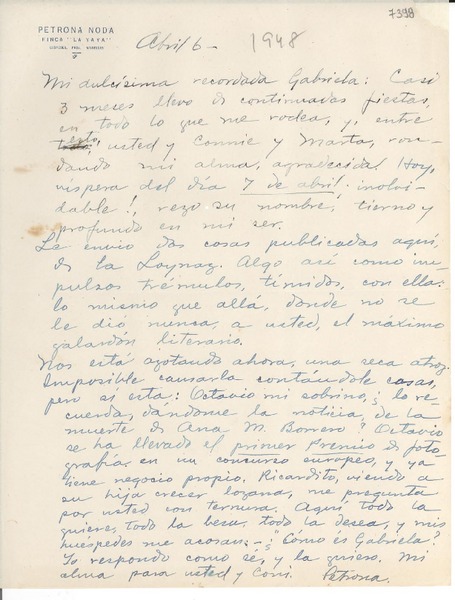 7398
PETRONA NODA
FINCA "LA YAYA"
Abril 6 - 1948
Mi dulcísima recordada Gabriela: Casi
3 meses llevo de continuadas fiestas,
en todo lo que me rodea, y, entre
esto, usted y Connie y Marta, ron-
dando mi alma, agradecida. Hoy,
víspera del día 7 de abril, inolvi-
dable!, rezo su nombre, tierno y
profundo en mi ser.
Le envío dos cosas publicadas aquí,
de la Loynaz. Algo así como im-
pulsos trémulos, tímidos, con ella:
lo mismo que allá, donde no se
le dio nunca, a usted, el máximo
galardón literario.
Nos está agotando ahora, una seca atroz.
Imposible causarla contándole cosas,
pero sí esta: Octavio mi sobrino, ¿lo re-
cuerda, dándome la noticia, de la
muerte de Ana M. Borrero? Octavio
se ha llevado el primer Premio de foto-
grafía en un concurso europeo, y ya
tiene negocio propio. Ricardito, viendo a
su hija crecer lozana, me pregunta
por usted con ternura. Aquí todo la
quiere, todo la besa, todo la desea, y mis
huéspedes me acosan: - ¿Cómo es Gabriela?
Yo respondo como sé, y la quiero. Mi
alma para usted y Coni. Petrona.